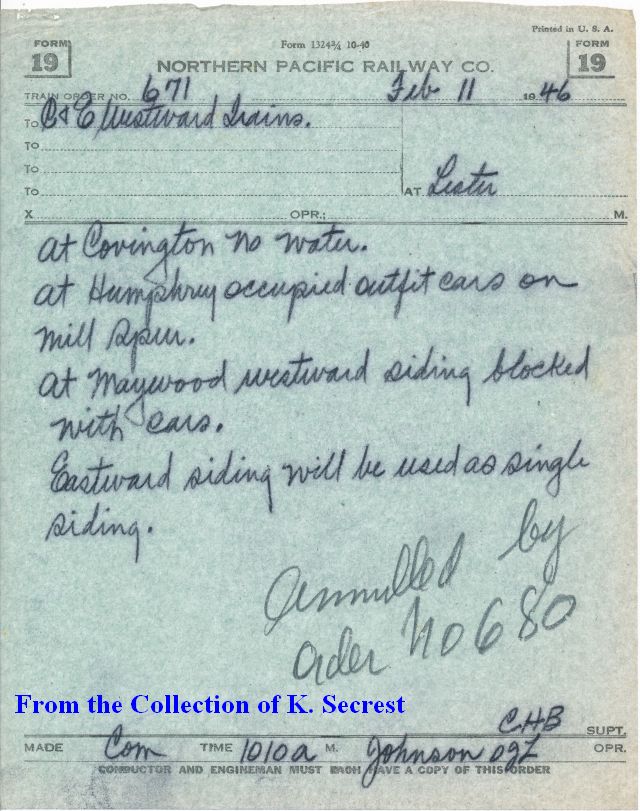 Printed in U. S. A.
FORM 19
Form 1324¾ 10-40
FORM 19
NORTHERN PACIFIC RAILWAY CO.
TRAIN ORDER NO. 671 Feb 11 1946
To C & E Westward Trains.
To
To
To AT Lester
X OPR.; M.
At Covington no water.
At Humphrey occupied outfit cars on
mill spur.
At Maywood westward siding blocked
with cars.
Eastward siding will be used as single
siding.
Annulled by
order No 680
From the Collection of K. Secrest
CHB SUPT.
MADE Com TIME 1010a M. Johnson OPR.
CONDUCTOR AND ENGINEMAN MUST EACH HAVE A COPY OF THIS ORDER